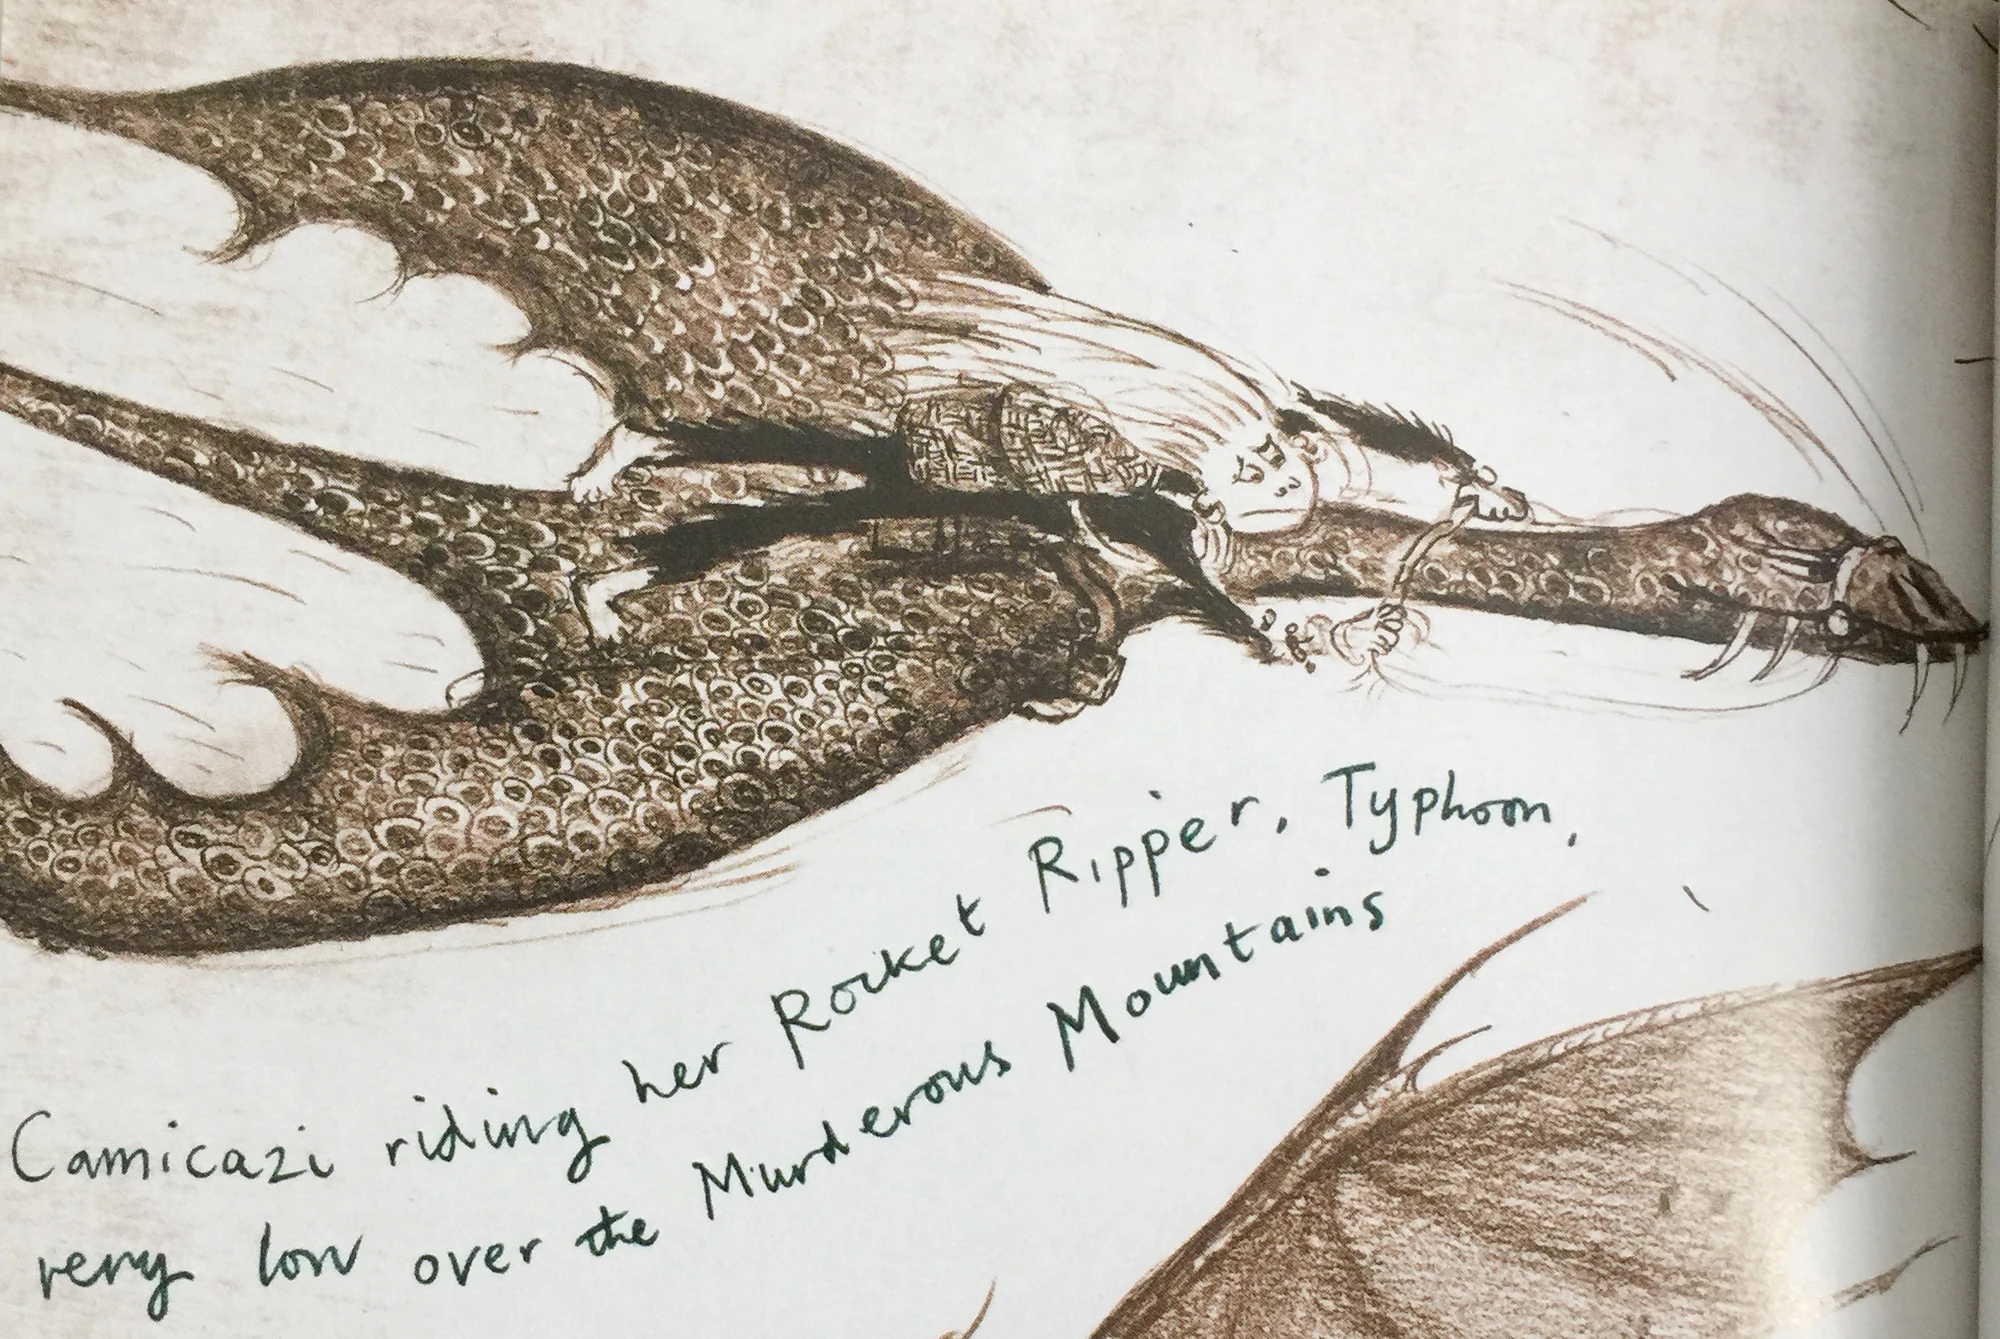 Camicazi riding her Rocket Ripper, Typhoon,
very low over the Murderous Mountains